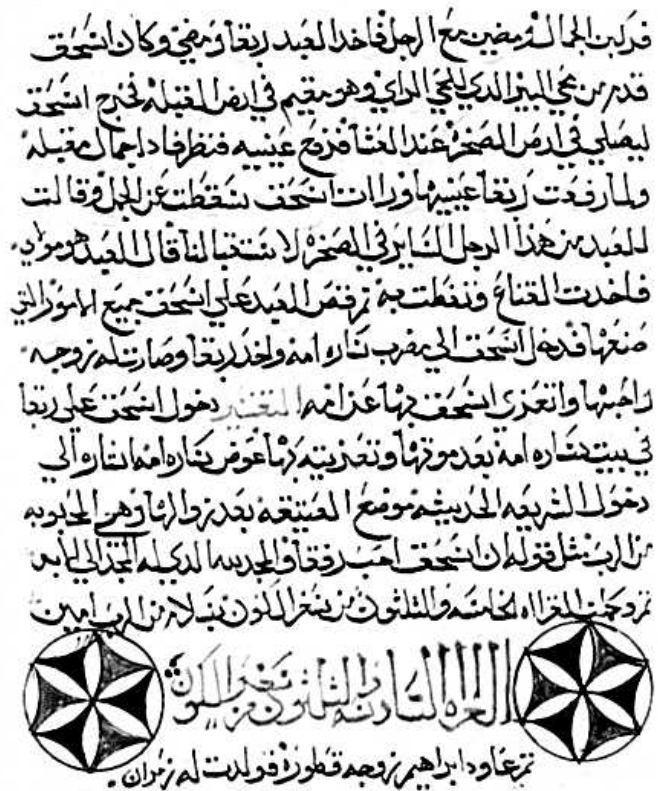 فركبن الجمال ومضين مع الرجل فاخد العبد ربقا ومضي وكان اسحق
قدم من مجي البير الدي للحي الراي وهو مقيم في ارض القبله فخرج اسحق
ليصلي في ارض الصخره عند العشا فرفع عينيه فنظر فادا جمال مقبله
ولما رفعت ربقا عينيها ورات اسحق سقطت عن الجمل وقالت
للعبد من هذا الرجل الساير في الصخره لاستقبالنا قال العبد هو مولاي
فاخدت القناع وتغطت به ثم قص العبد علي اسحق جميع الامور التي
صنعها فدخل اسحق الي مضرب ساره امه واخد ربقا وصارت له زوجه
واحبها واتعزي اسحق بها عن امه التفسير دخول اسحق علي ربقا
في بيت ساره امه بعد موتها وتعزيته بها عوض ساره امه اشاره الي
دخول الشريعه الحديثه موضع العتيقه بعد زوالها وهي المحبوبه
من الرب مثل قوله ان اسحق احب رفقا والمجد لله الدي له المجد الي الابد
تمت وكملت القراه الخامسه والثلثون من سفر الكون بسلام من الرب امين
القراه السادسه والثلثون من سفر الكون
ثم عاود ابراهيم زوجه قطوره فولدت له زمران